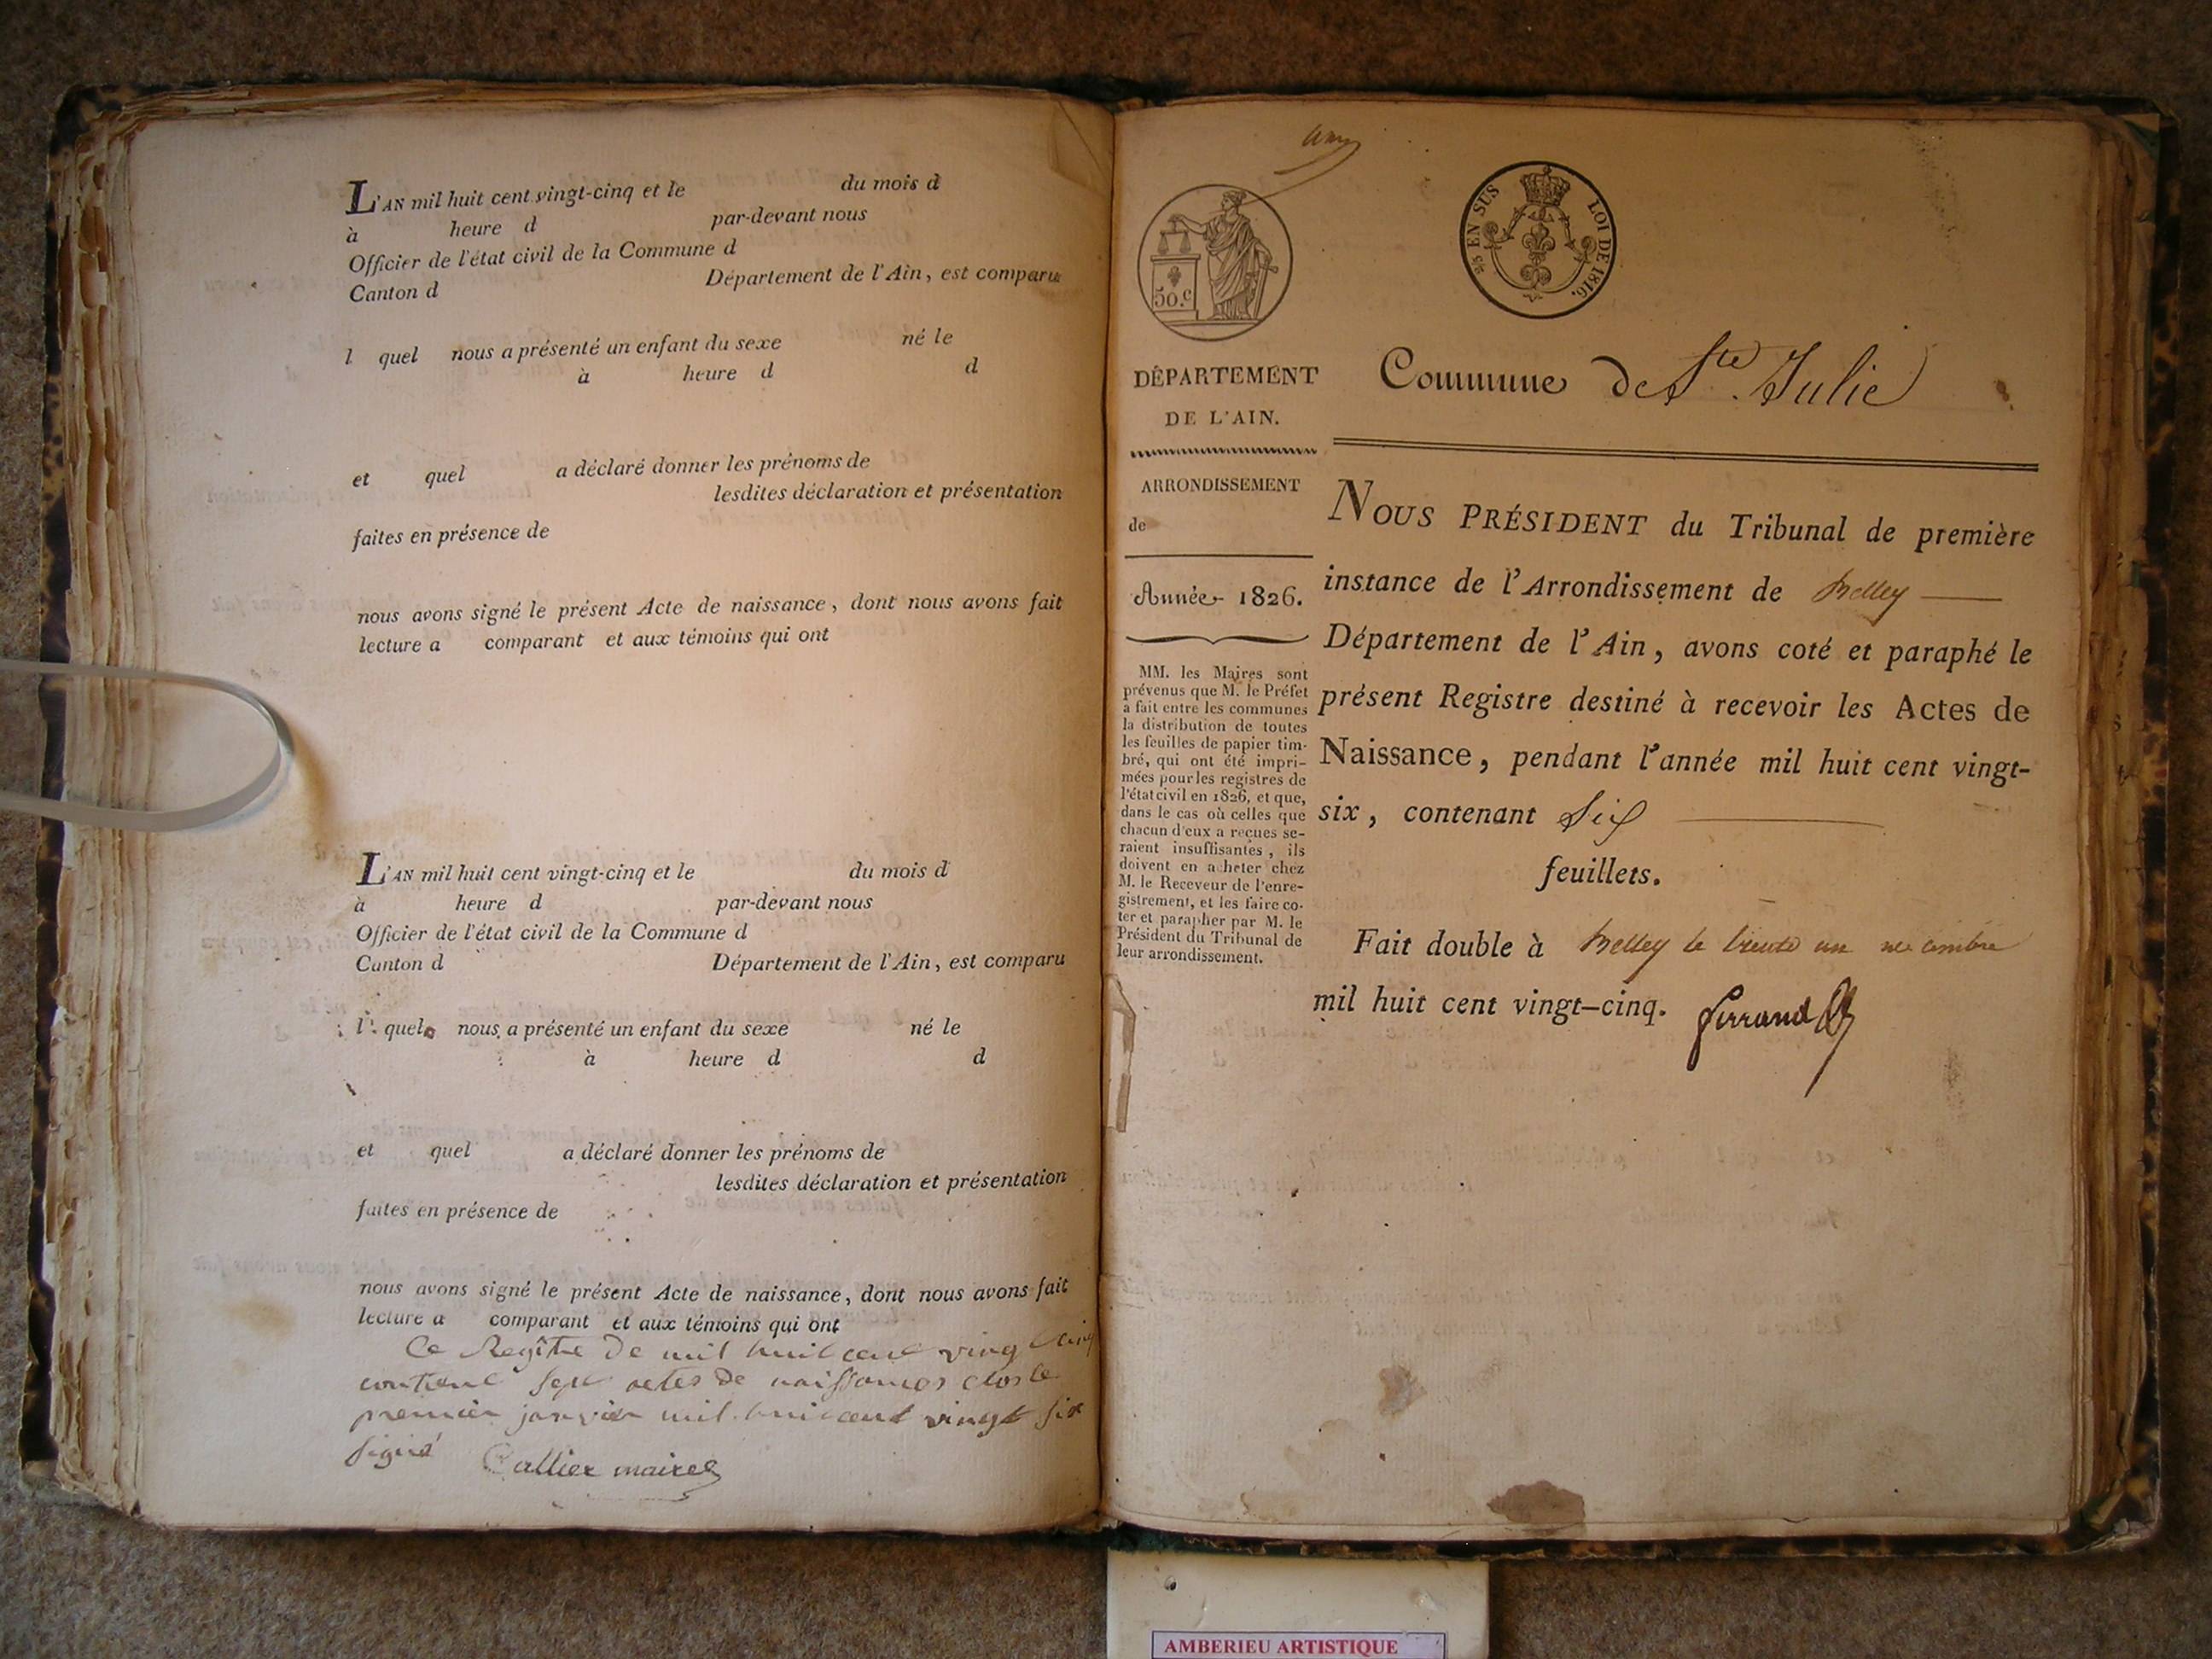 L'AN mil huit cent vingt-cinq et le du mois d
à heure d par-devant nous
Officier de l'état civil de la Commune d
Canton d Département de l'Ain, est comparu
l quel nous a présenté un enfant du sexe né le
à heure d d
et quel a déclaré donner les prénoms de
lesdites déclaration et présentation
faites en présence de
nous avons signé le présent Acte de naissance, dont nous avons fait
lecture a comparant et aux témoins qui ont
L'AN mil huit cent vingt-cinq et le du mois d
à heure d par-devant nous
Officier de l'état civil de la Commune d
Canton d Département de l'Ain, est comparu
l quel nous a présenté un enfant du sexe né le
à heure d d
et quel a déclaré donner les prénoms de
lesdites déclaration et présentation
faites en présence de
nous avons signé le présent Acte de naissance, dont nous avons fait
lecture a comparant et aux témoins qui ont
Ce Regître De mil huit cent vingt cinq
contient sept actes De naissances clos le
premier janvier mil huit cent vingt six
signé Callier maire
50.c
EN SUS LOI DE 1816.
DÉPARTEMENT
DE L'AIN.
ARRONDISSEMENT
de
Année 1826.
MM. les Maires sont
prévenus que M. le Préfet
a fait entre les communes
la distribution de toutes
les feuilles de papier tim-
bré, qui ont été impri-
mées pour les registres de
l'état civil en 1826, et que,
dans le cas où celles que
chacun d'eux a reçues se-
raient insuffisantes, ils
doivent en acheter chez
M. le Receveur de l'enre-
gistrement, et les faire co-
ter et parapher par M. le
Président du Tribunal de
leur arrondissement.
Commune de Ste. Julie
NOUS PRÉSIDENT du Tribunal de première
instance de l'Arrondissement de Belley
Département de l'Ain, avons coté et paraphé le
présent Registre destiné à recevoir les Actes de
Naissance, pendant l'année mil huit cent vingt-
six, contenant Six
feuillets.
Fait double à Belley le trente un
mil huit cent vingt-cinq. Ferrand
AMBERIEU ARTISTIQUE